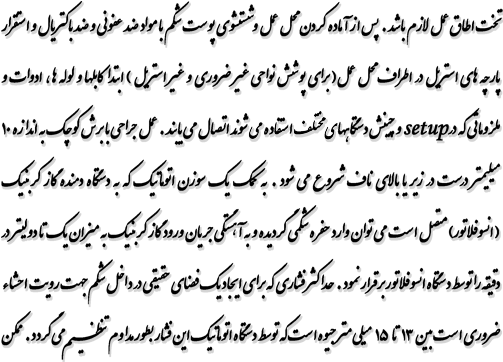 تخت اطاق عمل لازم باشد. پس از آماده کردن محل عمل و شستشوی پوست شکم با مواد ضد عفونی و ضد باکتریال و استقرار
پارچه های استریل در اطراف محل عمل (برای پوشش نواحی غیر ضروری و غیر استریل) ابتدا کابلها و لوله ها، ادوات و
ملزوماتی که در setup و چینش دستگاههای مختلف استفاده می شوند اتصال می یابند. عمل جراحی با برش کوچک به اندازه ۱۰
میلیمتر درست در زیر یا بالای ناف شروع می شود. به کمک یک سوزن اتوماتیک که به دستگاه دمنده گاز کربنیک
(انسوفلاتور) متصل است می توان وارد حفره شکمی گردیده و به آهستگی جریان ورود گاز کربنیک به میزان یک تا دو لیتر در
دقیقه را توسط دستگاه انسوفلاتور برقرار نمود. حداکثر فشاری که برای ایجاد یک فضای حقیقی در داخل شکم جهت رویت احشاء
ضروری است بین ۱۳ تا ۱۵ میلی متر جیوه است که توسط دستگاه اتوماتیک این فشار بطور مداوم تنظیم می گردد. ممکن